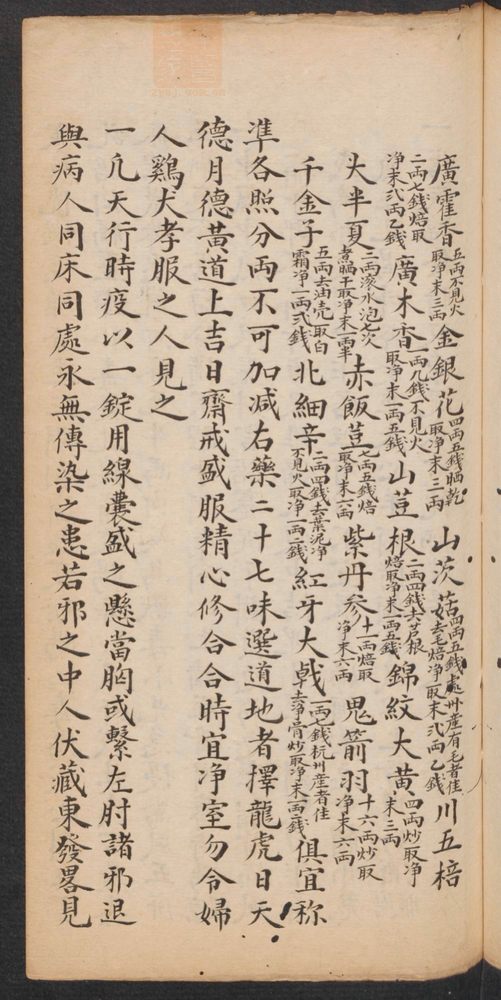 廣霍香五兩不見火取净末三兩金銀花四兩五錢晒乾取净末三兩山茨菇四兩五錢處州産有毛者佳去毛焙净取末弍兩乙錢川五棓
二兩七錢焙取净末弍兩乙錢廣木香一兩九錢不見火取净末一兩五錢山荳根二兩四錢去芦根焙取净末一兩五錢錦紋大黄四兩炒取净末三兩
大半夏二兩滚水泡七次煮晒干取净末一兩半赤飯荳七兩五錢焙取净末一兩紫丹參十一兩焙取净末六兩鬼箭羽十六兩炒取净末六兩
千金子五兩去油壳取白霜净一兩弍錢北細辛二兩四錢去葉泥净不見火取净一兩二錢紅牙大戟一兩七錢杭州産者佳去净骨炒取净末一兩二錢俱宜称
準各照分兩不可加減右藥二十七味選道地者擇龍虎日天
德月德黄道上吉日齋戒盛服精心修合合時宜净室勿令婦
人鷄犬孝服之人見之
一凡天行時疫以一錠用線囊盛之懸當胸或繫左肘諸邪退
與病人同床同處永無傳染之患若邪之中人伏藏東發畧見